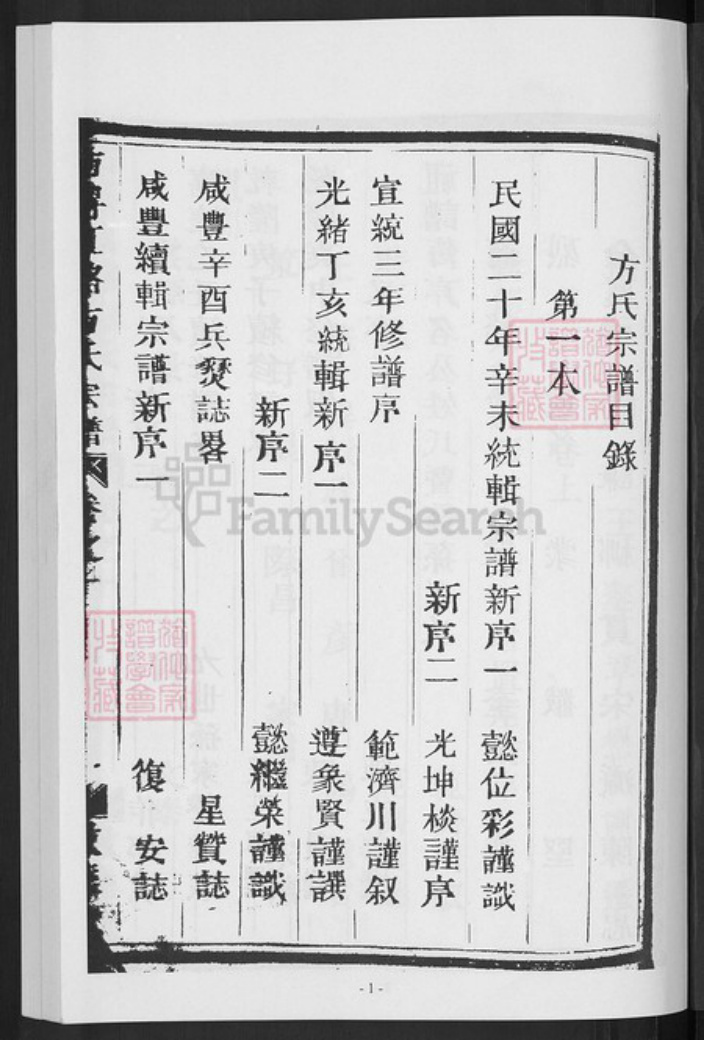 方氏宗譜目錄
第一本
民國二十年辛未統輯宗譜新序一 懿位彩謹識
新序二 光坤棪謹序
宣統三年修譜序 範濟川謹叙
光緒丁亥統輯新序一 遵象賢謹譔
新序二 懿繼榮謹識
咸豐辛酉兵燹誌畧 星贊誌
咸豐續輯宗譜新序一 復安誌
氏宗譜
FamilySearch
- 1 -